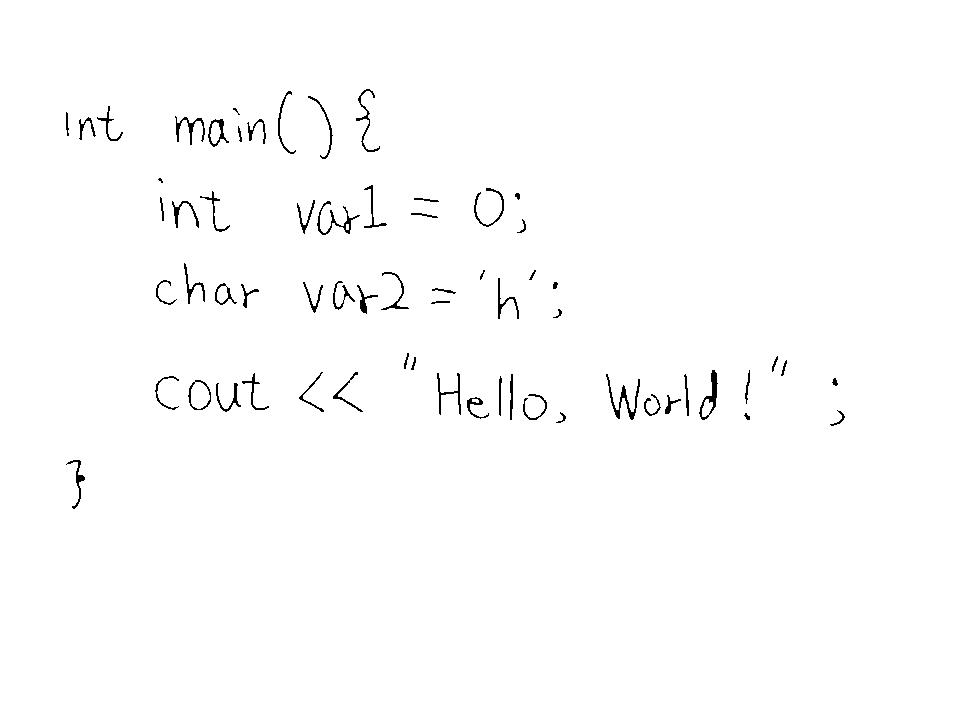 int main(){
int var1 = 0;
char var2 = 'h';
cout << "Hello, World!" ;
}